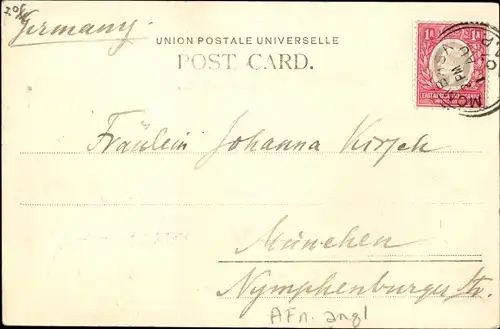 Germany.
UNION POSTALE UNIVERSELLE
POST CARD.
1A 1A
Fräulein Johanna Kirsch
München
Nymphenburgerstr.
AFn. angl